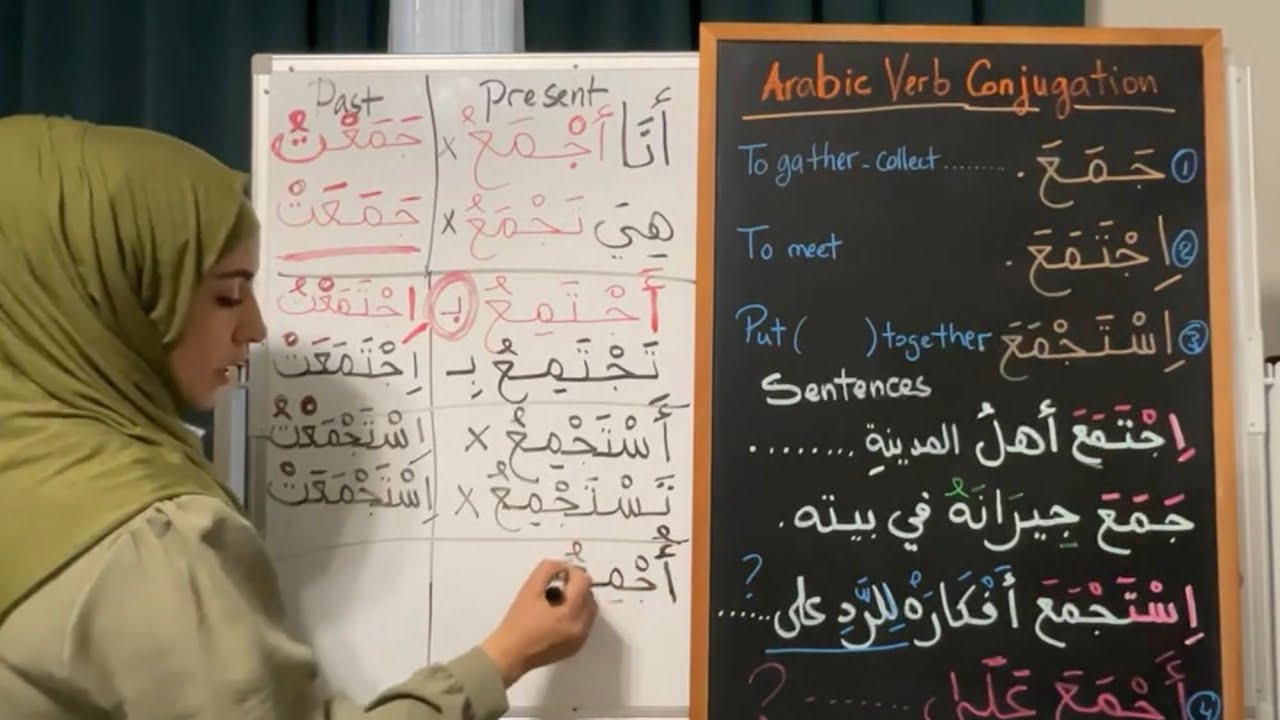 Past Present
أَنَا أَجْمَعُ × جَمَعْتُ
هِيَ تَجْمَعُ × جَمَعَتْ
أَجْتَمِعُ بـ اِجْتَمَعْتُ
تَجْتَمِعُ بـ اِجْتَمَعَتْ
أَسْتَجْمِعُ × اِسْتَجْمَعْتُ
تَسْتَجْمِعُ × اِسْتَجْمَعَتْ
أُجْمِعُ
Arabic Verb Conjugation
To gather-collect ......... جَمَعَ. ①
To meet اِجْتَمَعَ. ②
Put ( ) together اِسْتَجْمَعَ ③
Sentences
اِجْتَمَعَ أَهلُ المدينةِ ........
جَمَعَ جِيرَانَهُ في بيته.
اِسْتَجْمَعَ أَفْكَارَهُ لِلرَّدِ على ...... ?
أَجْمَعَ عَلَى ...... ? ④